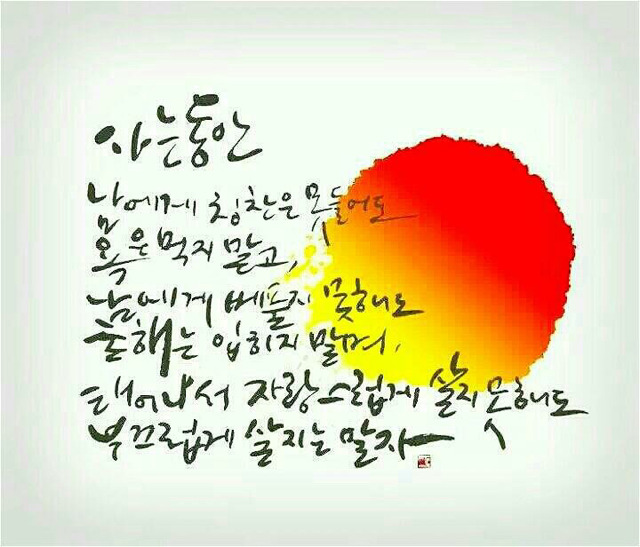 사는동안
남에게 칭찬은 못들어도
욕은 먹지 말고,
남에게 베풀지 못해도
손해는 입히지 말며,
태어나서 자랑스럽게 살지 못해도
부끄럽게 살지는 말자